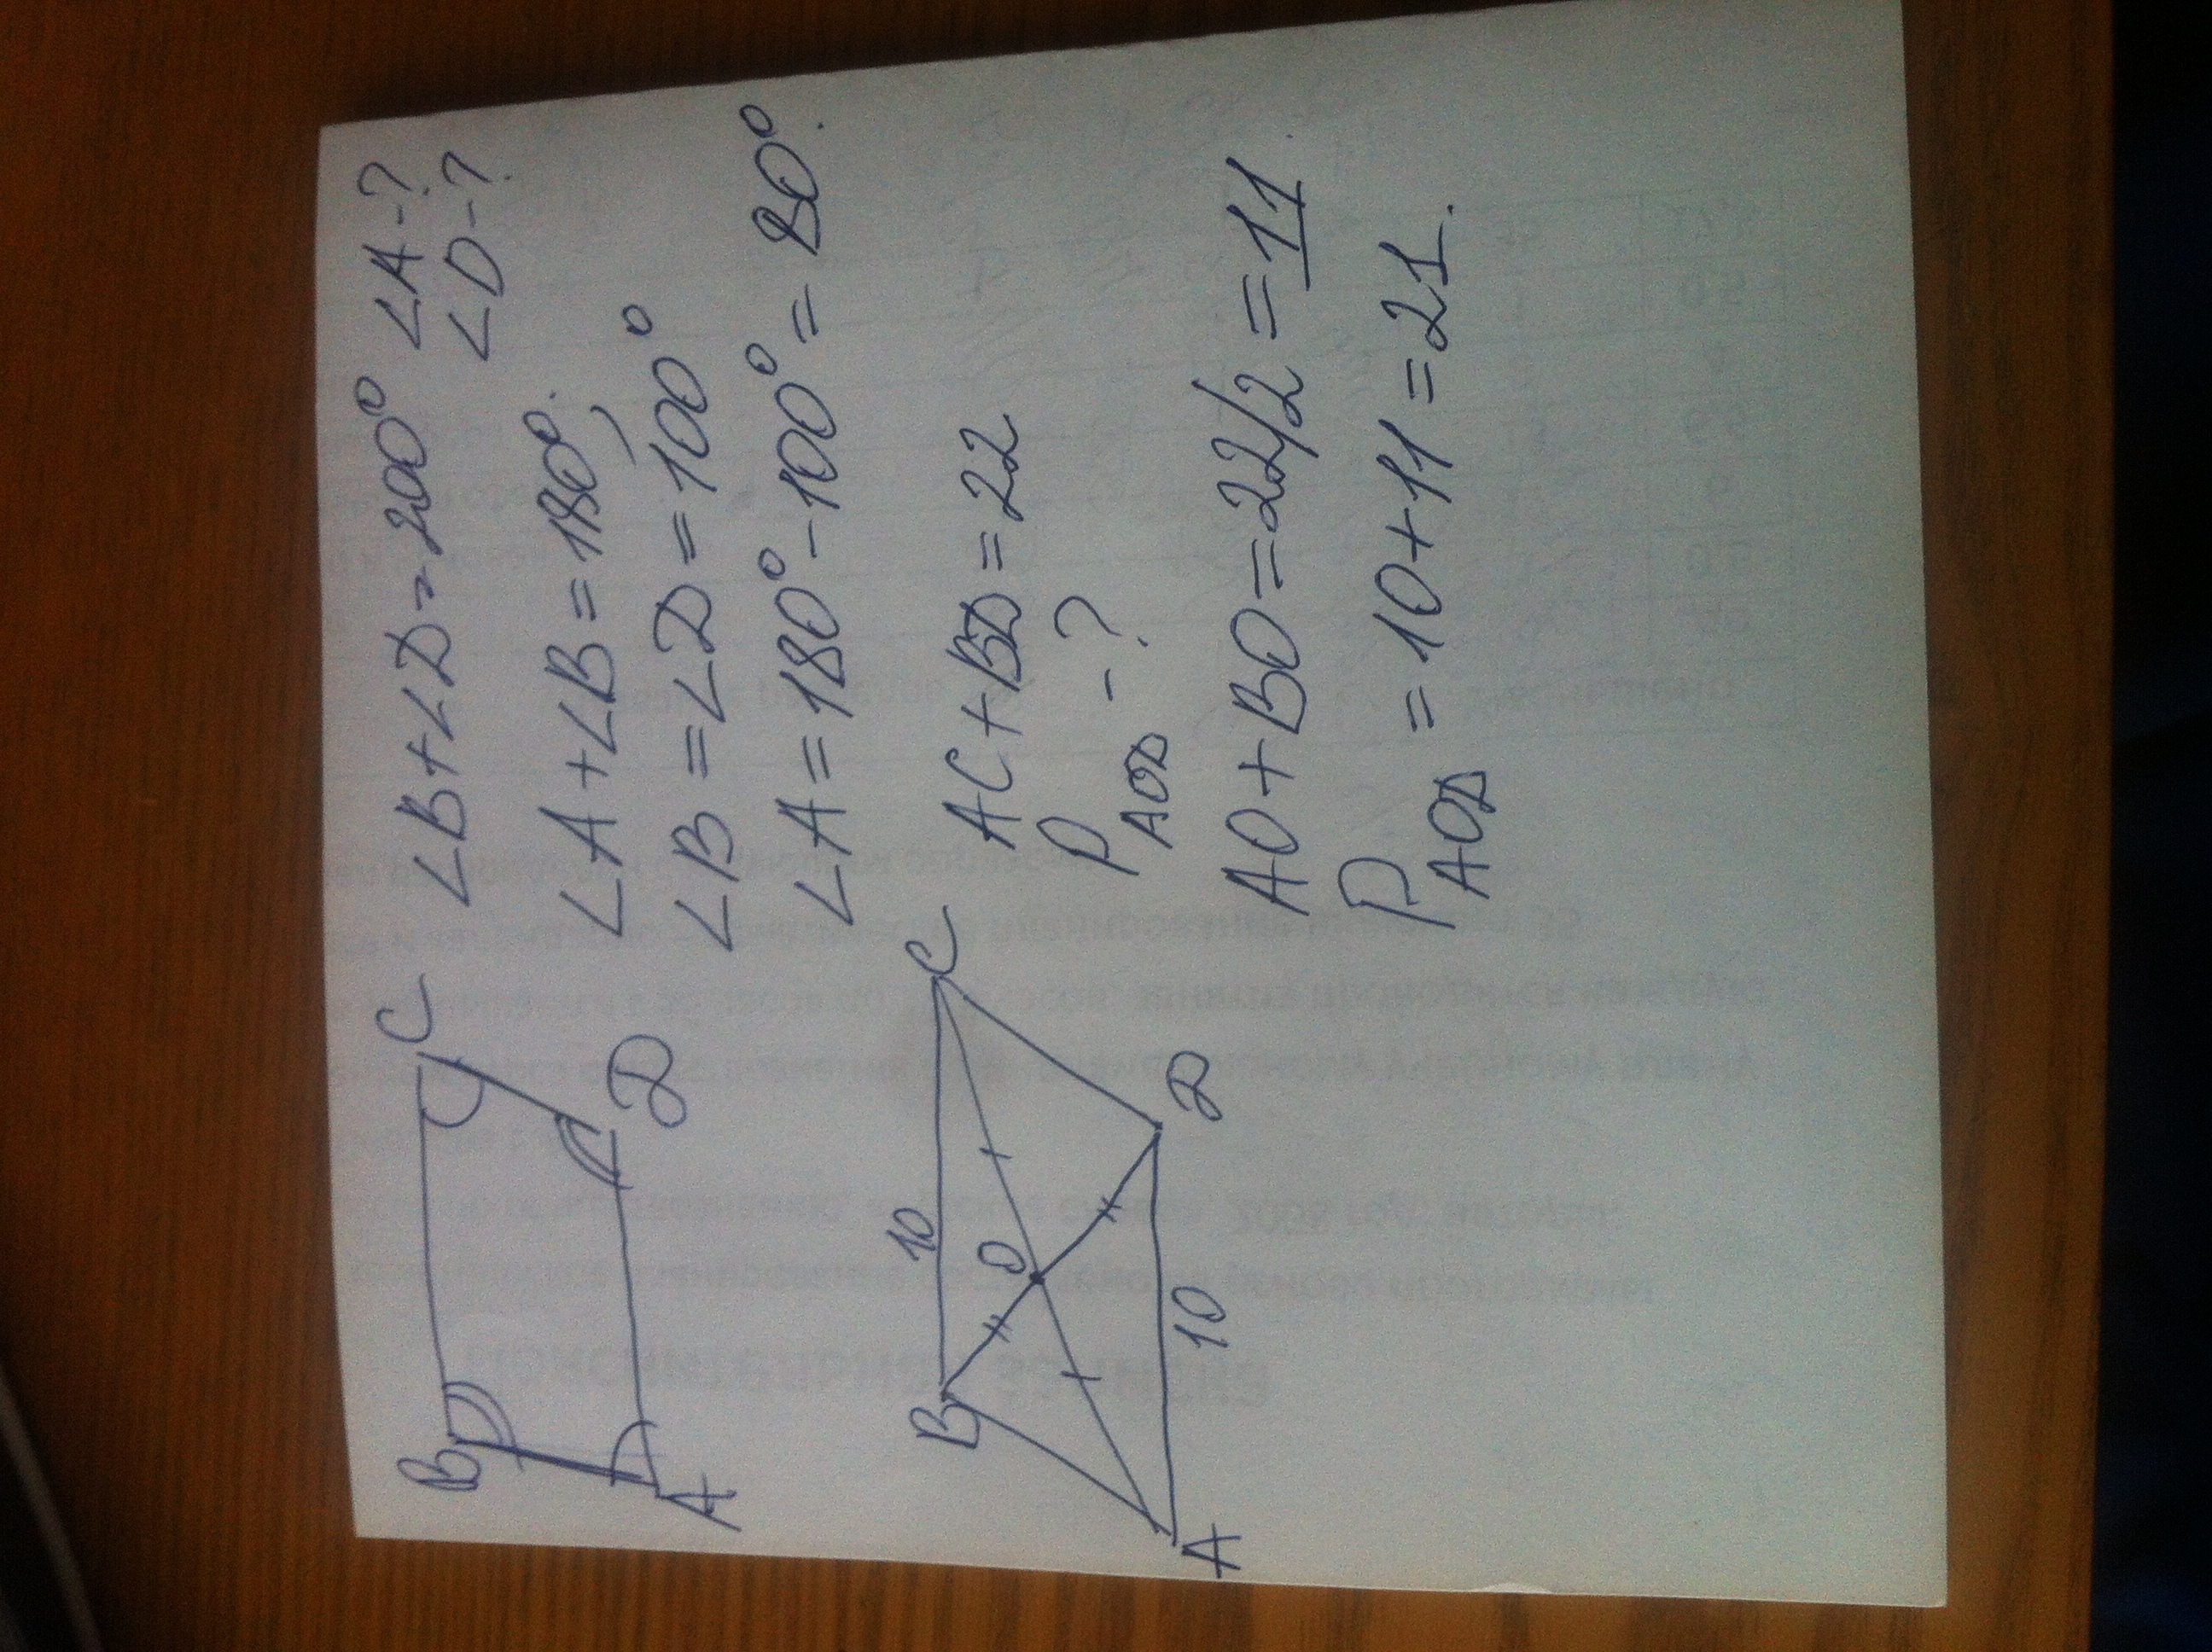 B C ∠B+∠D=200° ∠A-?
∠D-?
A D
∠A+∠B=180°.
∠B=∠D=100°
∠A=180°-100°=80°.
B 10 C
O
A 10 D
AC+BD=22
P AOD -?
AO+BO=22/2=11.
P AOD =10+11=21.